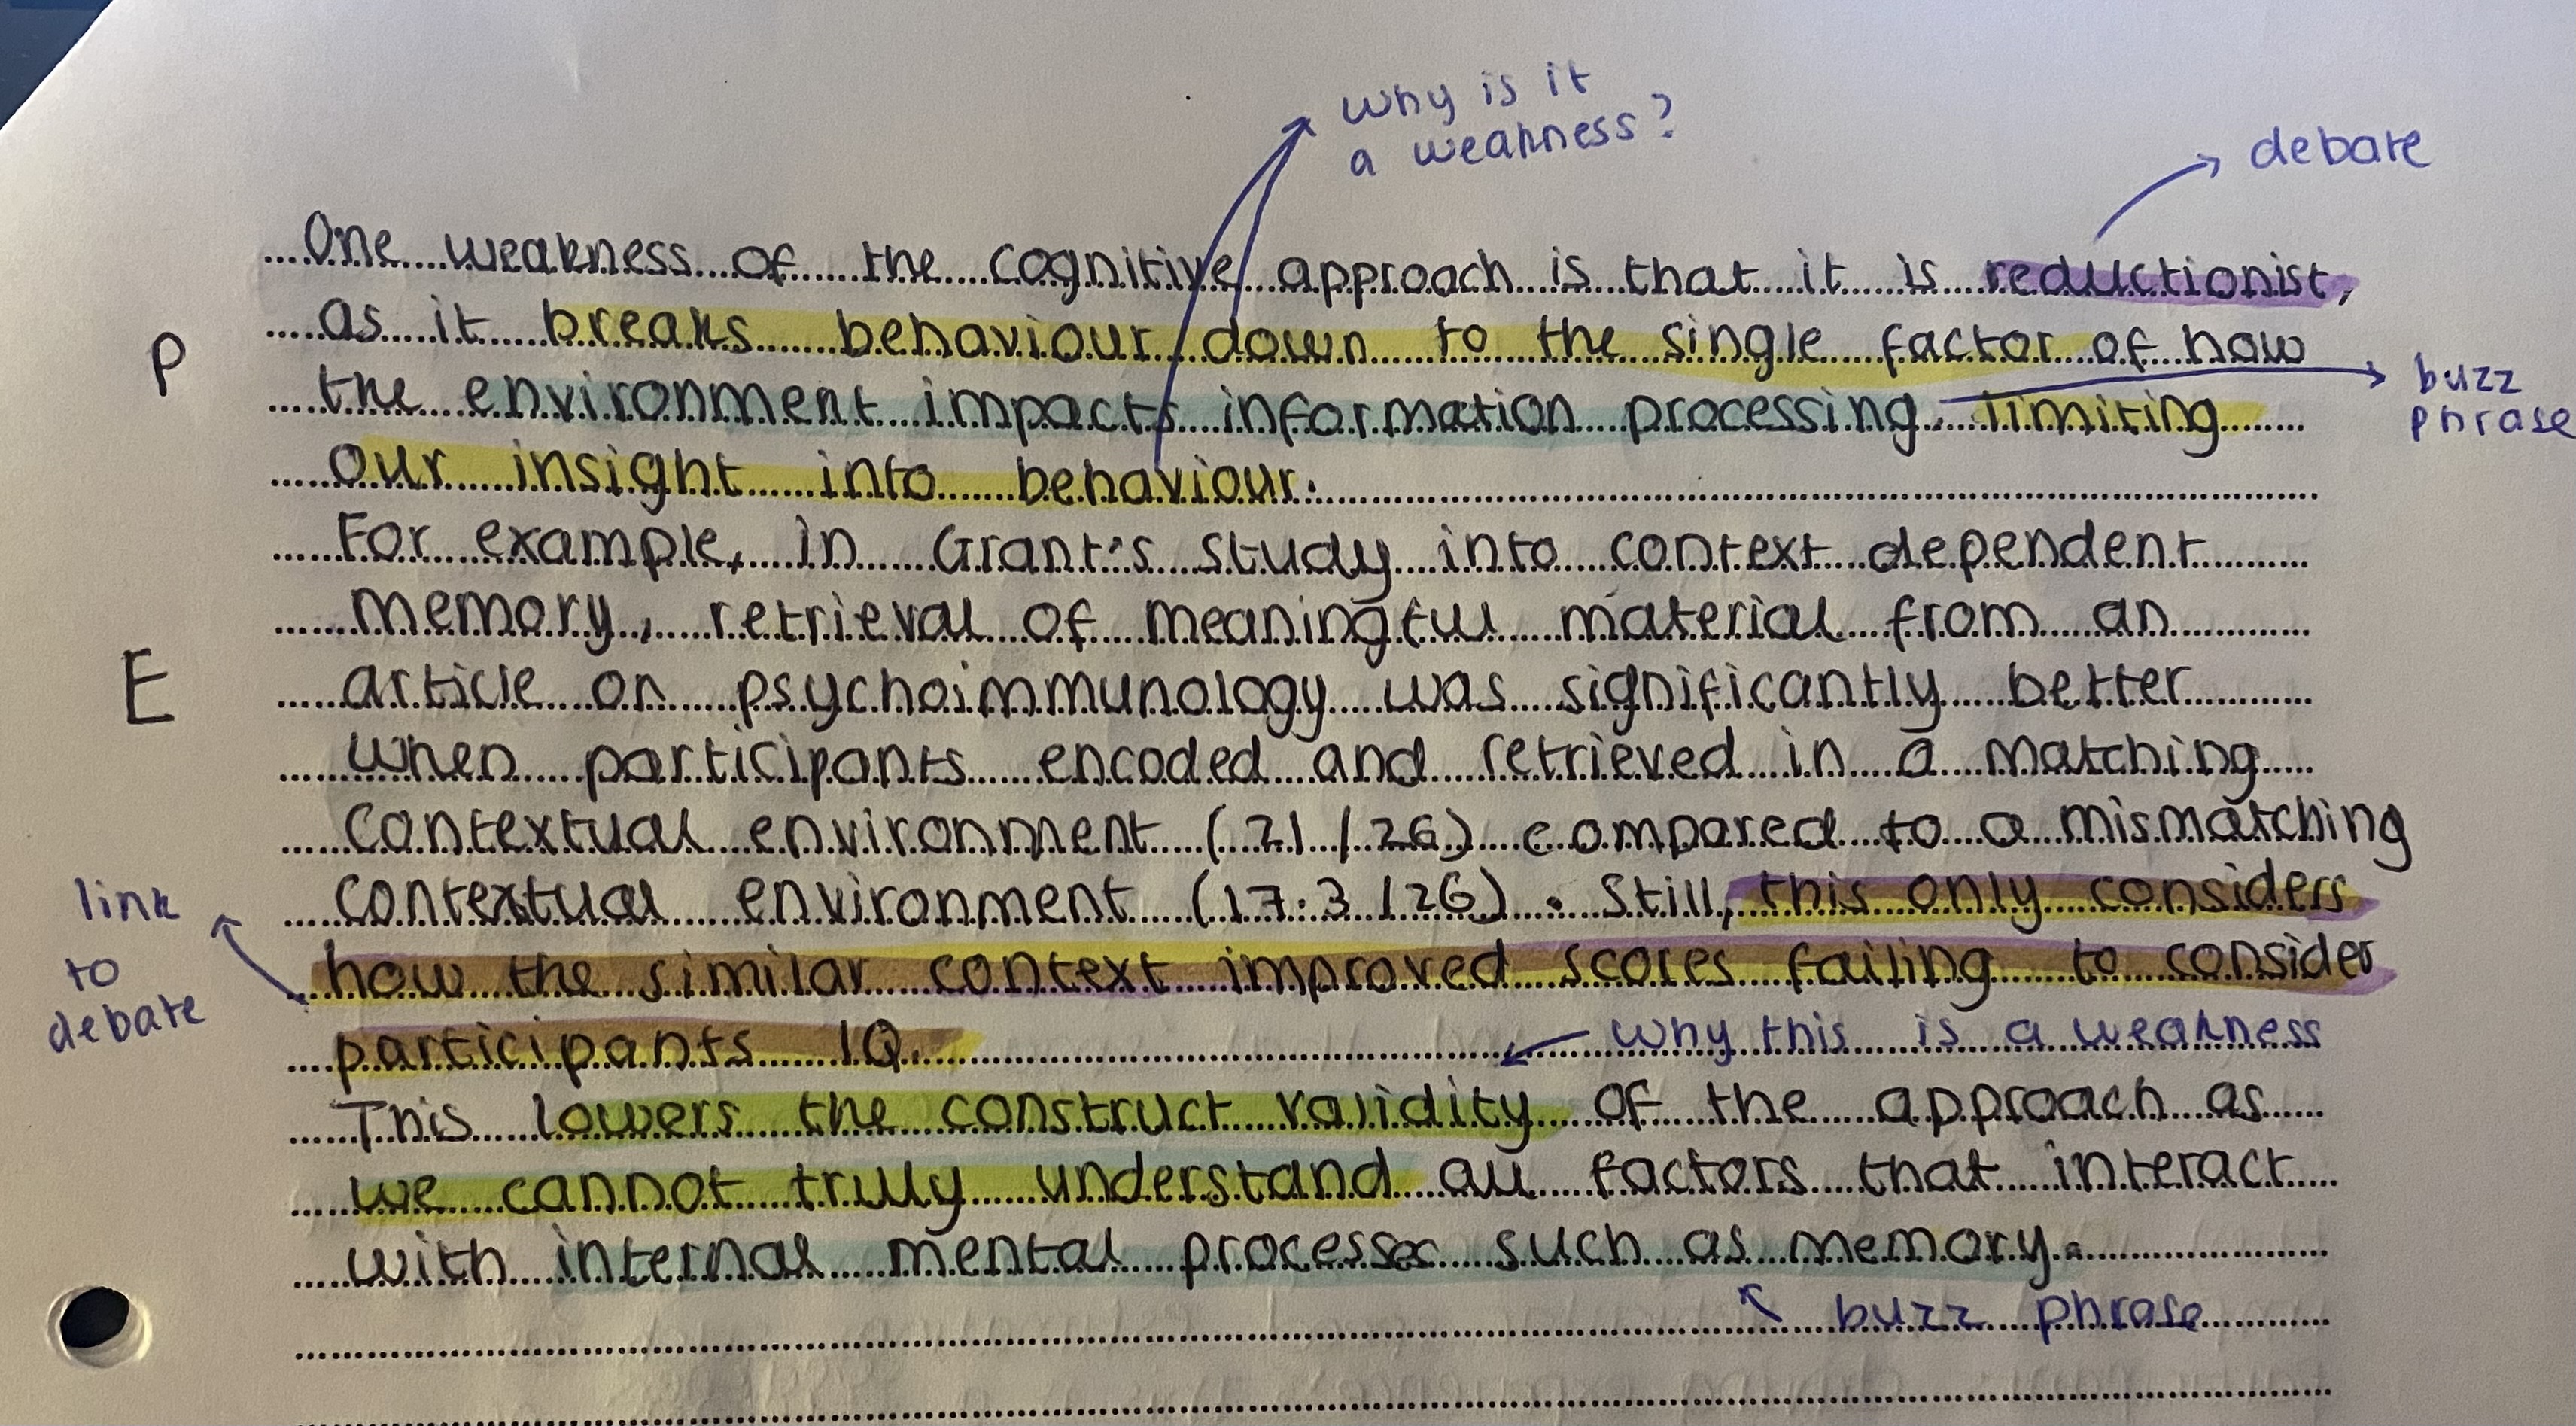 why is it
a weakness?
debate
One weakness of the cognitive approach is that it is reductionist,
P
as it breaks behaviour down to the single factor of how
the environment impacts information processing, limiting
buzz
phrase
our insight into behaviour.
For example, in Grant's study into context dependent
memory, retrieval of meaningful material from an
E
article on psychoimmunology was significantly better
when participants encoded and retrieved in a matching
contextual environment (21/26) compared to a mismatching
contextual environment (17.3/26). Still, this only considers
link
to
debate
how the similar context improved scores failing to consider
participants IQ.
why this is a weakness
This lowers the construct validity of the approach as
we cannot truly understand all factors that interact
with internal mental processes such as memory.
buzz phrase